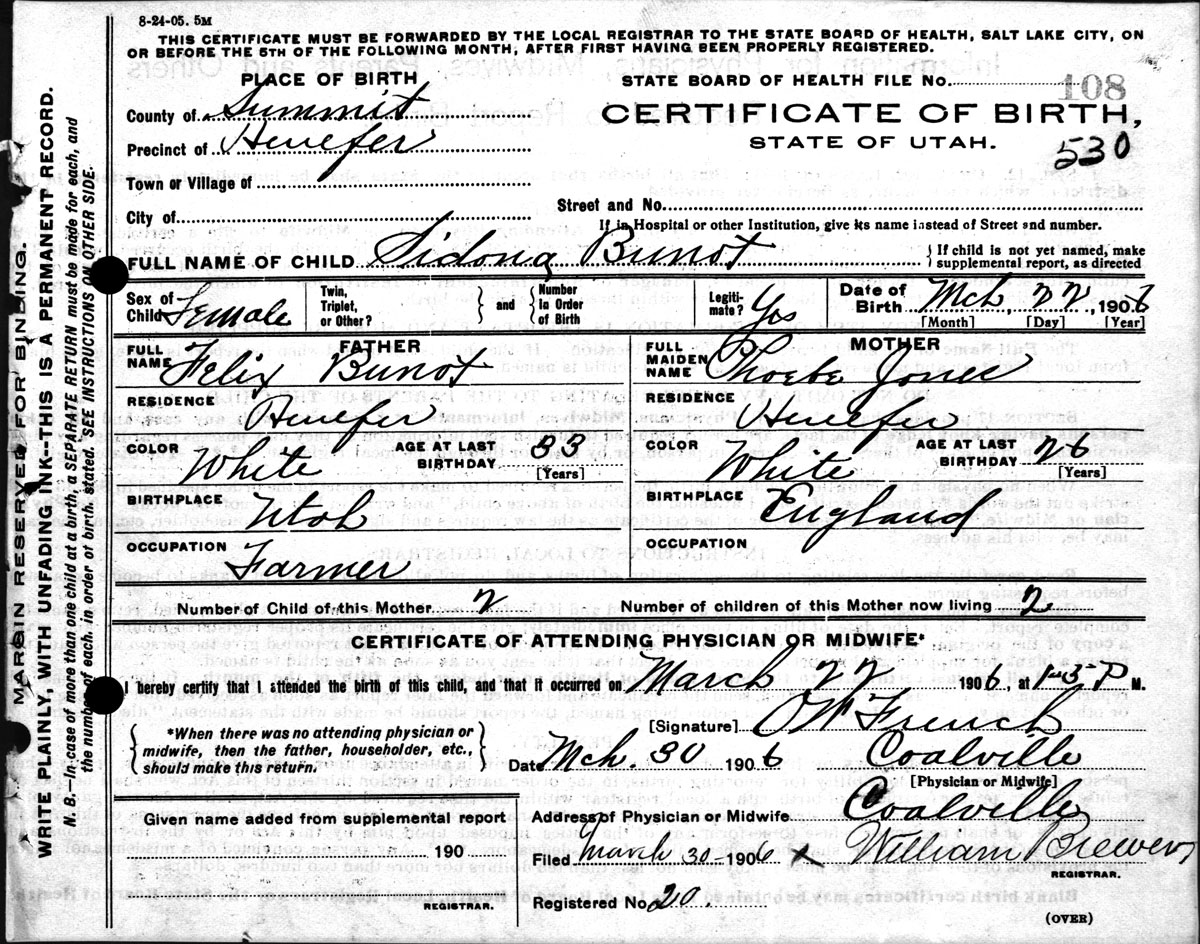 8-24-05. 5M
THIS CERTIFICATE MUST BE FORWARDED BY THE LOCAL REGISTRAR TO THE STATE BOARD OF HEALTH, SALT LAKE CITY, ON
OR BEFORE THE 5TH OF THE FOLLOWING MONTH, AFTER FIRST HAVING BEEN PROPERLY REGISTERED.
PLACE OF BIRTH
STATE BOARD OF HEALTH FILE No. 108
County of Summit
CERTIFICATE OF BIRTH,
Precinct of Henefer
STATE OF UTAH.
530
Town or Village of
City of
Street and No.
If in Hospital or other Institution, give its name instead of Street and number.
FULL NAME OF CHILD Sidona Bunot
If child is not yet named, make
supplemental report, as directed
Sex of Child Female
Twin, Triplet, or Other?
and
Number in Order of Birth
Legiti-mate? Yes
Date of Birth Mch 22, 1906
[Month] [Day] [Year]
FATHER
FULL NAME Felix Bunot
RESIDENCE Henefer
COLOR White
AGE AT LAST BIRTHDAY 33
[Years]
BIRTHPLACE Utah
OCCUPATION Farmer
MOTHER
FULL MAIDEN NAME Phoebe Jones
RESIDENCE Henefer
COLOR White
AGE AT LAST BIRTHDAY 26
[Years]
BIRTHPLACE England
OCCUPATION
Number of Child of this Mother 2
Number of children of this Mother now living 2
CERTIFICATE OF ATTENDING PHYSICIAN OR MIDWIFE*
I hereby certify that I attended the birth of this child, and that it occurred on March 22 1906, at P M.
*When there was no attending physician or
midwife, then the father, householder, etc.,
should make this return.
[Signature] O W French
Date Mch. 30 1906
Coalville
[Physician or Midwife]
Given name added from supplemental report
190
REGISTRAR.
Address of Physician or Midwife Coalville
Filed March 30- 1906 x William Brewer
REGISTRAR.
Registered No. 20.
(OVER)
MARGIN RESERVED FOR BINDING.
WRITE PLAINLY, WITH UNFADING INK--THIS IS A PERMANENT RECORD.
N. B.—In case of more than one child at a birth, a SEPARATE RETURN must be made for each, and
the number of each, in order of birth, stated. SEE INSTRUCTIONS ON OTHER SIDE.